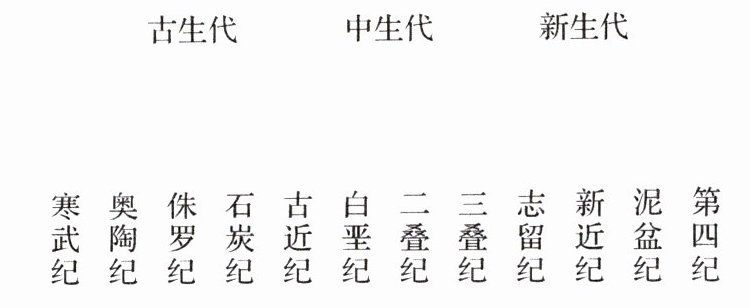 古生代 中生代 新生代
寒武纪
奥陶纪
侏罗纪
石炭纪
古近纪
白垩纪
二叠纪
三叠纪
志留纪
新近纪
泥盆纪
第四纪